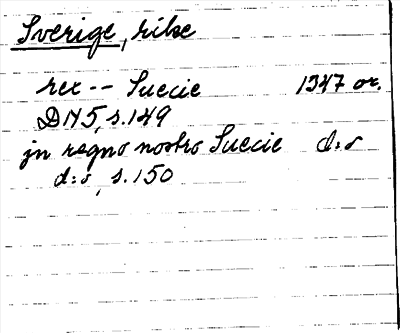 Sverige, rike
rex -- Suecie 1347 or.
DN 5, s. 149
in regno nostro Suecie d:o
d:o, s. 150